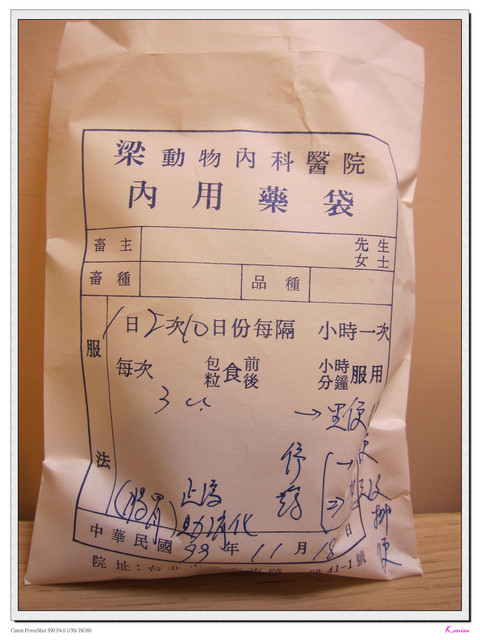 梁動物內科醫院
內用藥袋
畜主 先生女士
畜種 品種
服法
1日2次10日份每隔 小時一次
每次 包粒 食前後 小時分鐘 服用
3cc
→黑便
停药
(腸胃) 止瀉
助消化
中華民國99年11月18日
院址:台北市 41-1號
Canon PowerShot S90 F4.0 1/30s ISO80
Katrina